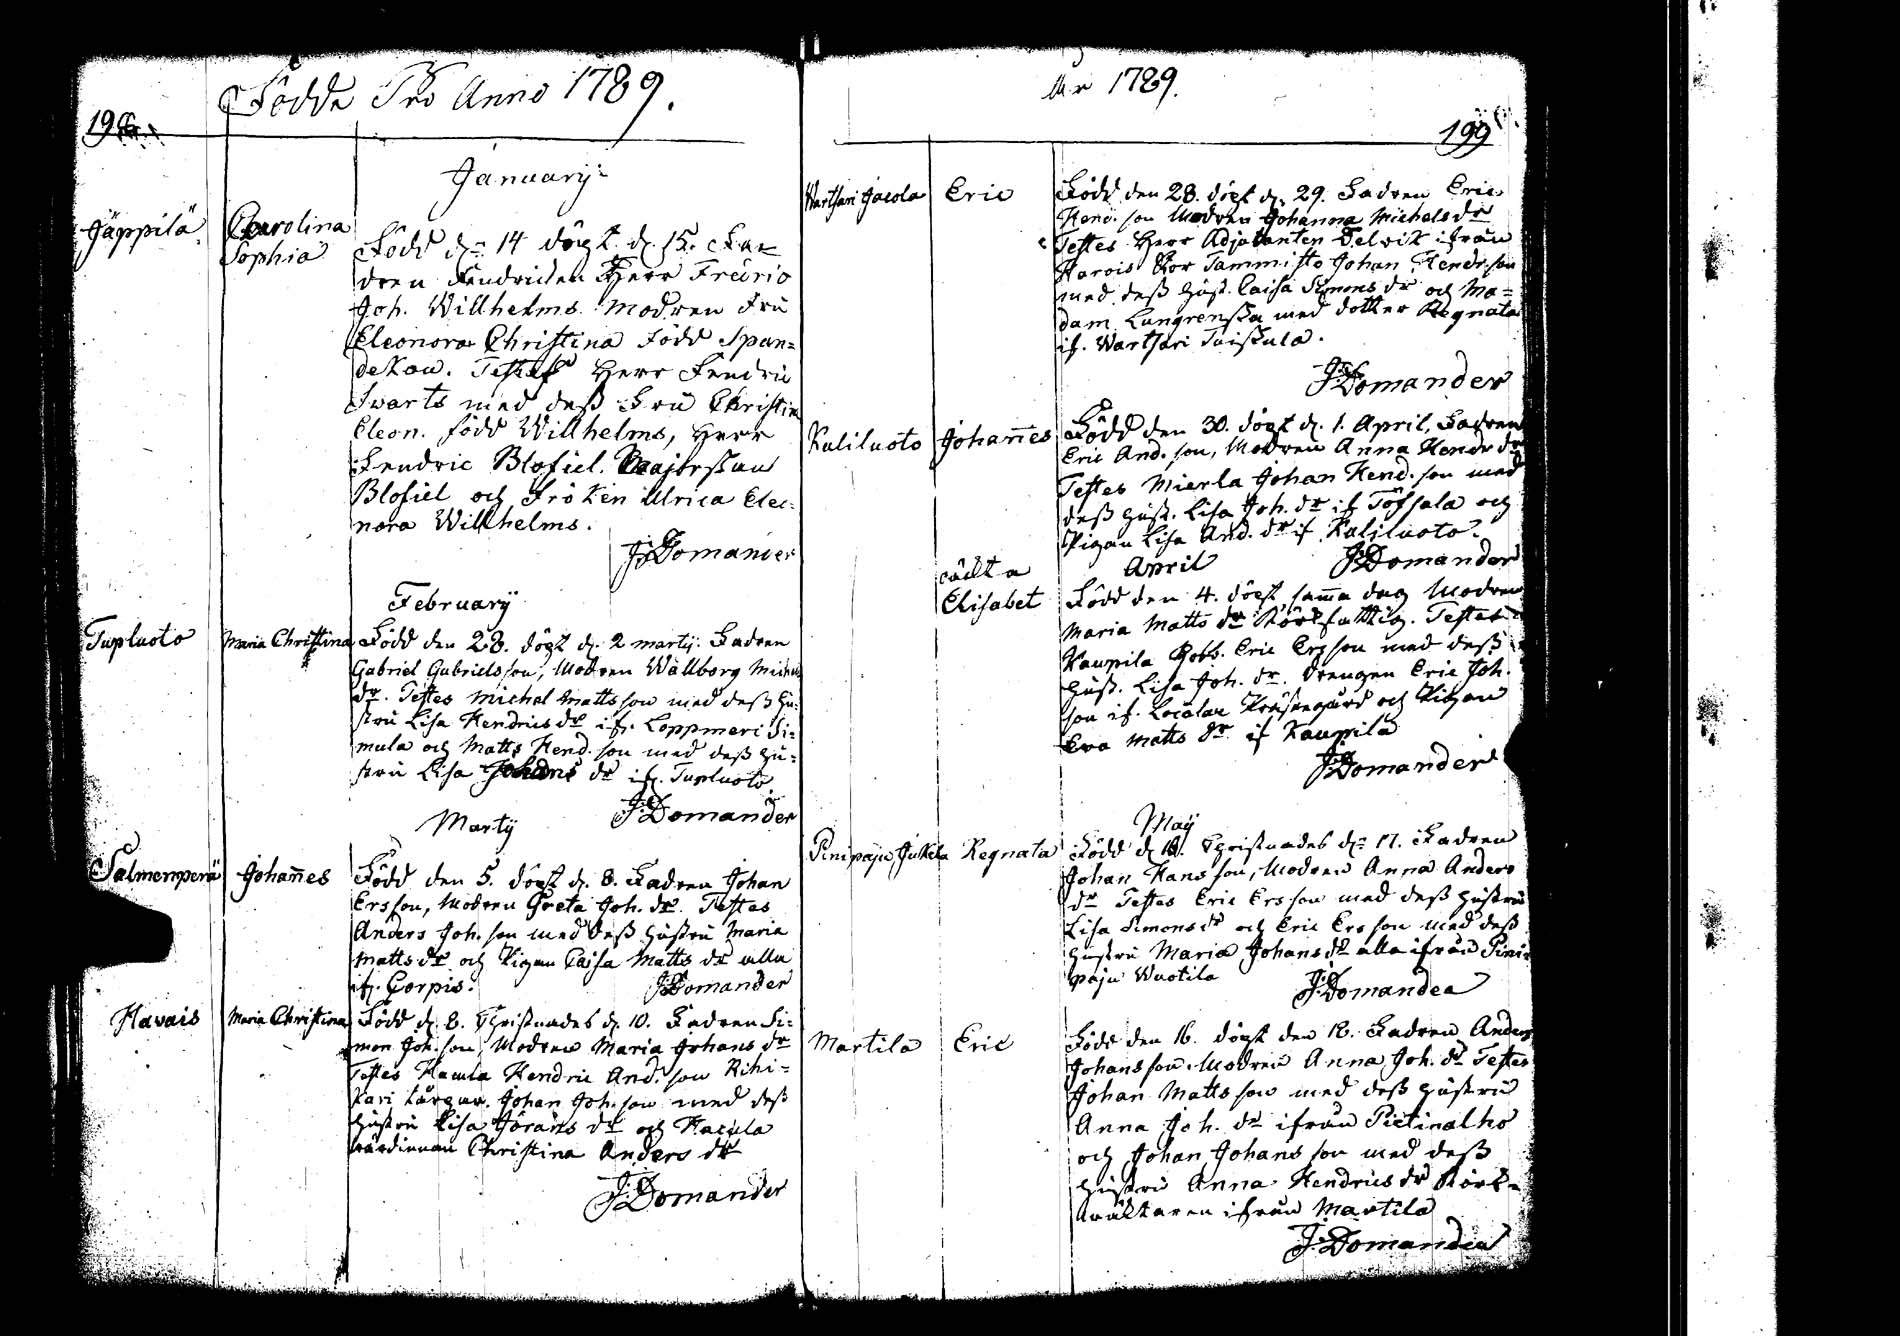 Födde Pro Anno 1789.
198
January
Jäppilä
Carolina
Sophia
Född d. 14 döpt d. 15. Fa-
dren Fendricken Herr Fredric
Joh. Willhelms. Modren Fru
Eleonora Christina född Span=
dekow. Testes Herr Fendric
Swarts med dess Fru Christina
Eleon. född Willhelms, Herr
Fendric Blofiel. Majorskan
Blofiel och Fröken Ulrica Eleo=
nora Willhelms.
J. Domander
February
Tupluoto
Maria Christina
Född den 28. döpt d. 2 martij. Fadren
Gabriel Gabrielsson, Modren Wallborg Michels
dr. Testes Michel Mattsson med dess hu=
stru Lisa Hendrics dr if. Loppmeri Si=
mula och Matts Hend. son med dess hu=
stru Lisa Johans dr if. Tupluoto.
J. Domander
Martij
Salmenperä
Johannes
Född den 5. döpt d. 8. Fadren Johan
Ersson, Modren Greta Joh. dr. Testes
Anders Joh. son med dess hustru Maria
Matts dr och Pigan Caisa Matts dr alla
if. Corpis.
J. Domander
Havais
Maria Christina
Född d. 8. Christnades d. 10. Fadren Si=
mon Joh. son, Modren Maria Johans dr
Testes Hendric And. son Rihi=
kari Johan Joh. son med dess
hustru Lisa Görans dr och
värdinnan Christina Anders dr
J. Domander
1789.
199
Wartsari Jacola
Eric
Född den 28. döpt d. 29. Fadren Eric
Hend. son Modren Johanna Michels dr
Testes Herr Adjutanten Delwik ifrån
Havois Stor Tammisto Johan Hendr. son
med dess hust. Caisa Simons dr och Ma=
dam Lungrenska med dotter Regnata
if. Wartsari Tuiskula.
J. Domander
Kuliluoto
Johannes
Född den 30. döpt d. 1. April, Fadren
Eric And. son, Modren Anna Hendr dr
Testes Mierla Johan Hend. son med
dess hust. Lisa Joh. dr if Töfsala och
Pigan Lisa And. dr if Kuliluoto.
J. Domander
April
oäckta
Elisabet
Född den 4. döpt samma dag Modren
Maria Matts dr Testes
Kaupila Eric Ersson med dess
hust. Lisa Joh. dr. Drengen Eric Joh.
son if. Localax och Pigan
Eva Matts dr if Kaupila
J. Domander
May
Pinipaju Jukela
Regnata
Född d. 16. Christnades d. 17. Fadren
Johan Hansson, Modren Anna Anders
dr Testes Eric Ersson med dess hustru
Lisa Simons dr och Eric Ersson med dess
hustru Maria Johans dr alla ifrån Pini=
paju Wuotila
J. Domander
Martila
Eric
Född den 16. döpt den 18. Fadren Anders
Johansson Modren Anna Joh. dr Testes
Johan Mattsson med dess hustru
Anna Joh. dr ifrån Pietinalho
och Johan Johansson med dess
hustru Anna Hendrics dr Körk=
ifrån Martila
J. Domander